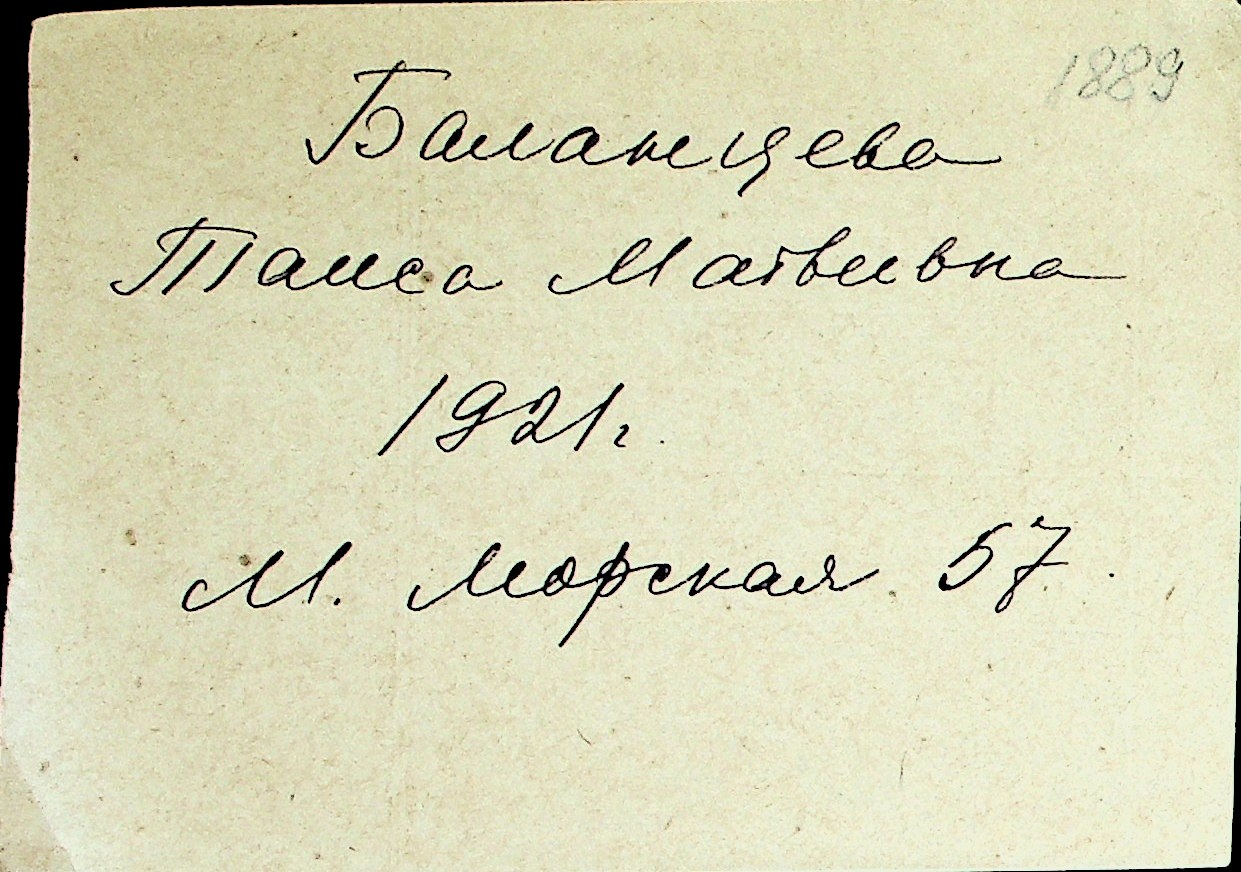 1889
Баланцева
Таиса Матвивна
1921г.
М. Морская 57.